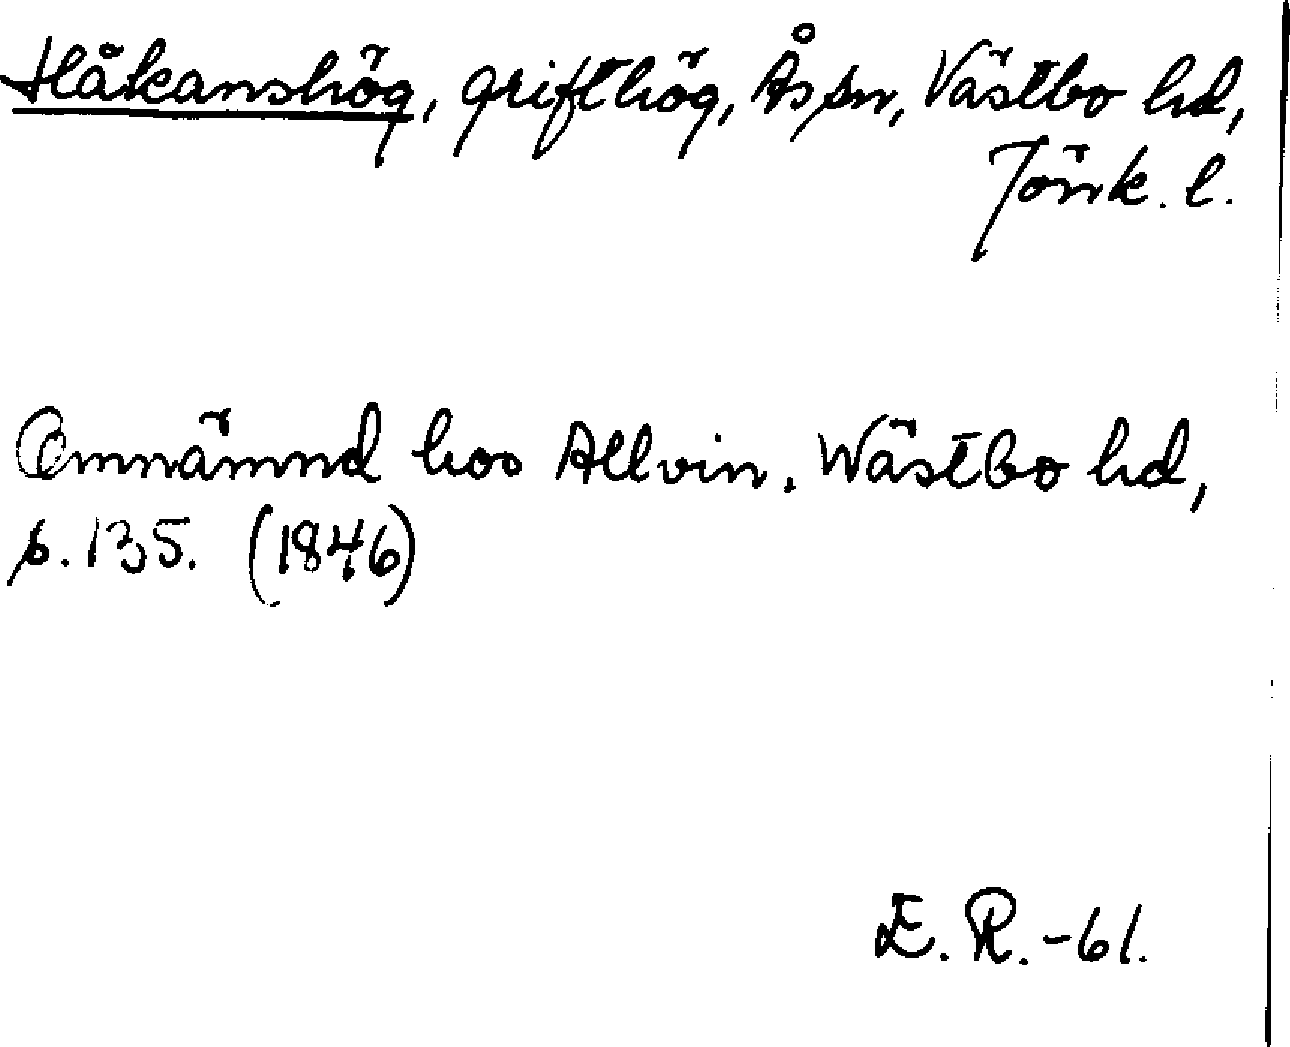 Håkanshög, grifthög, Ås sn, Västbo hd,
Jönk. l.
Omnämnd hos Allvin. Wästbo hd,
s. 135. (1846)
E. R. -61.